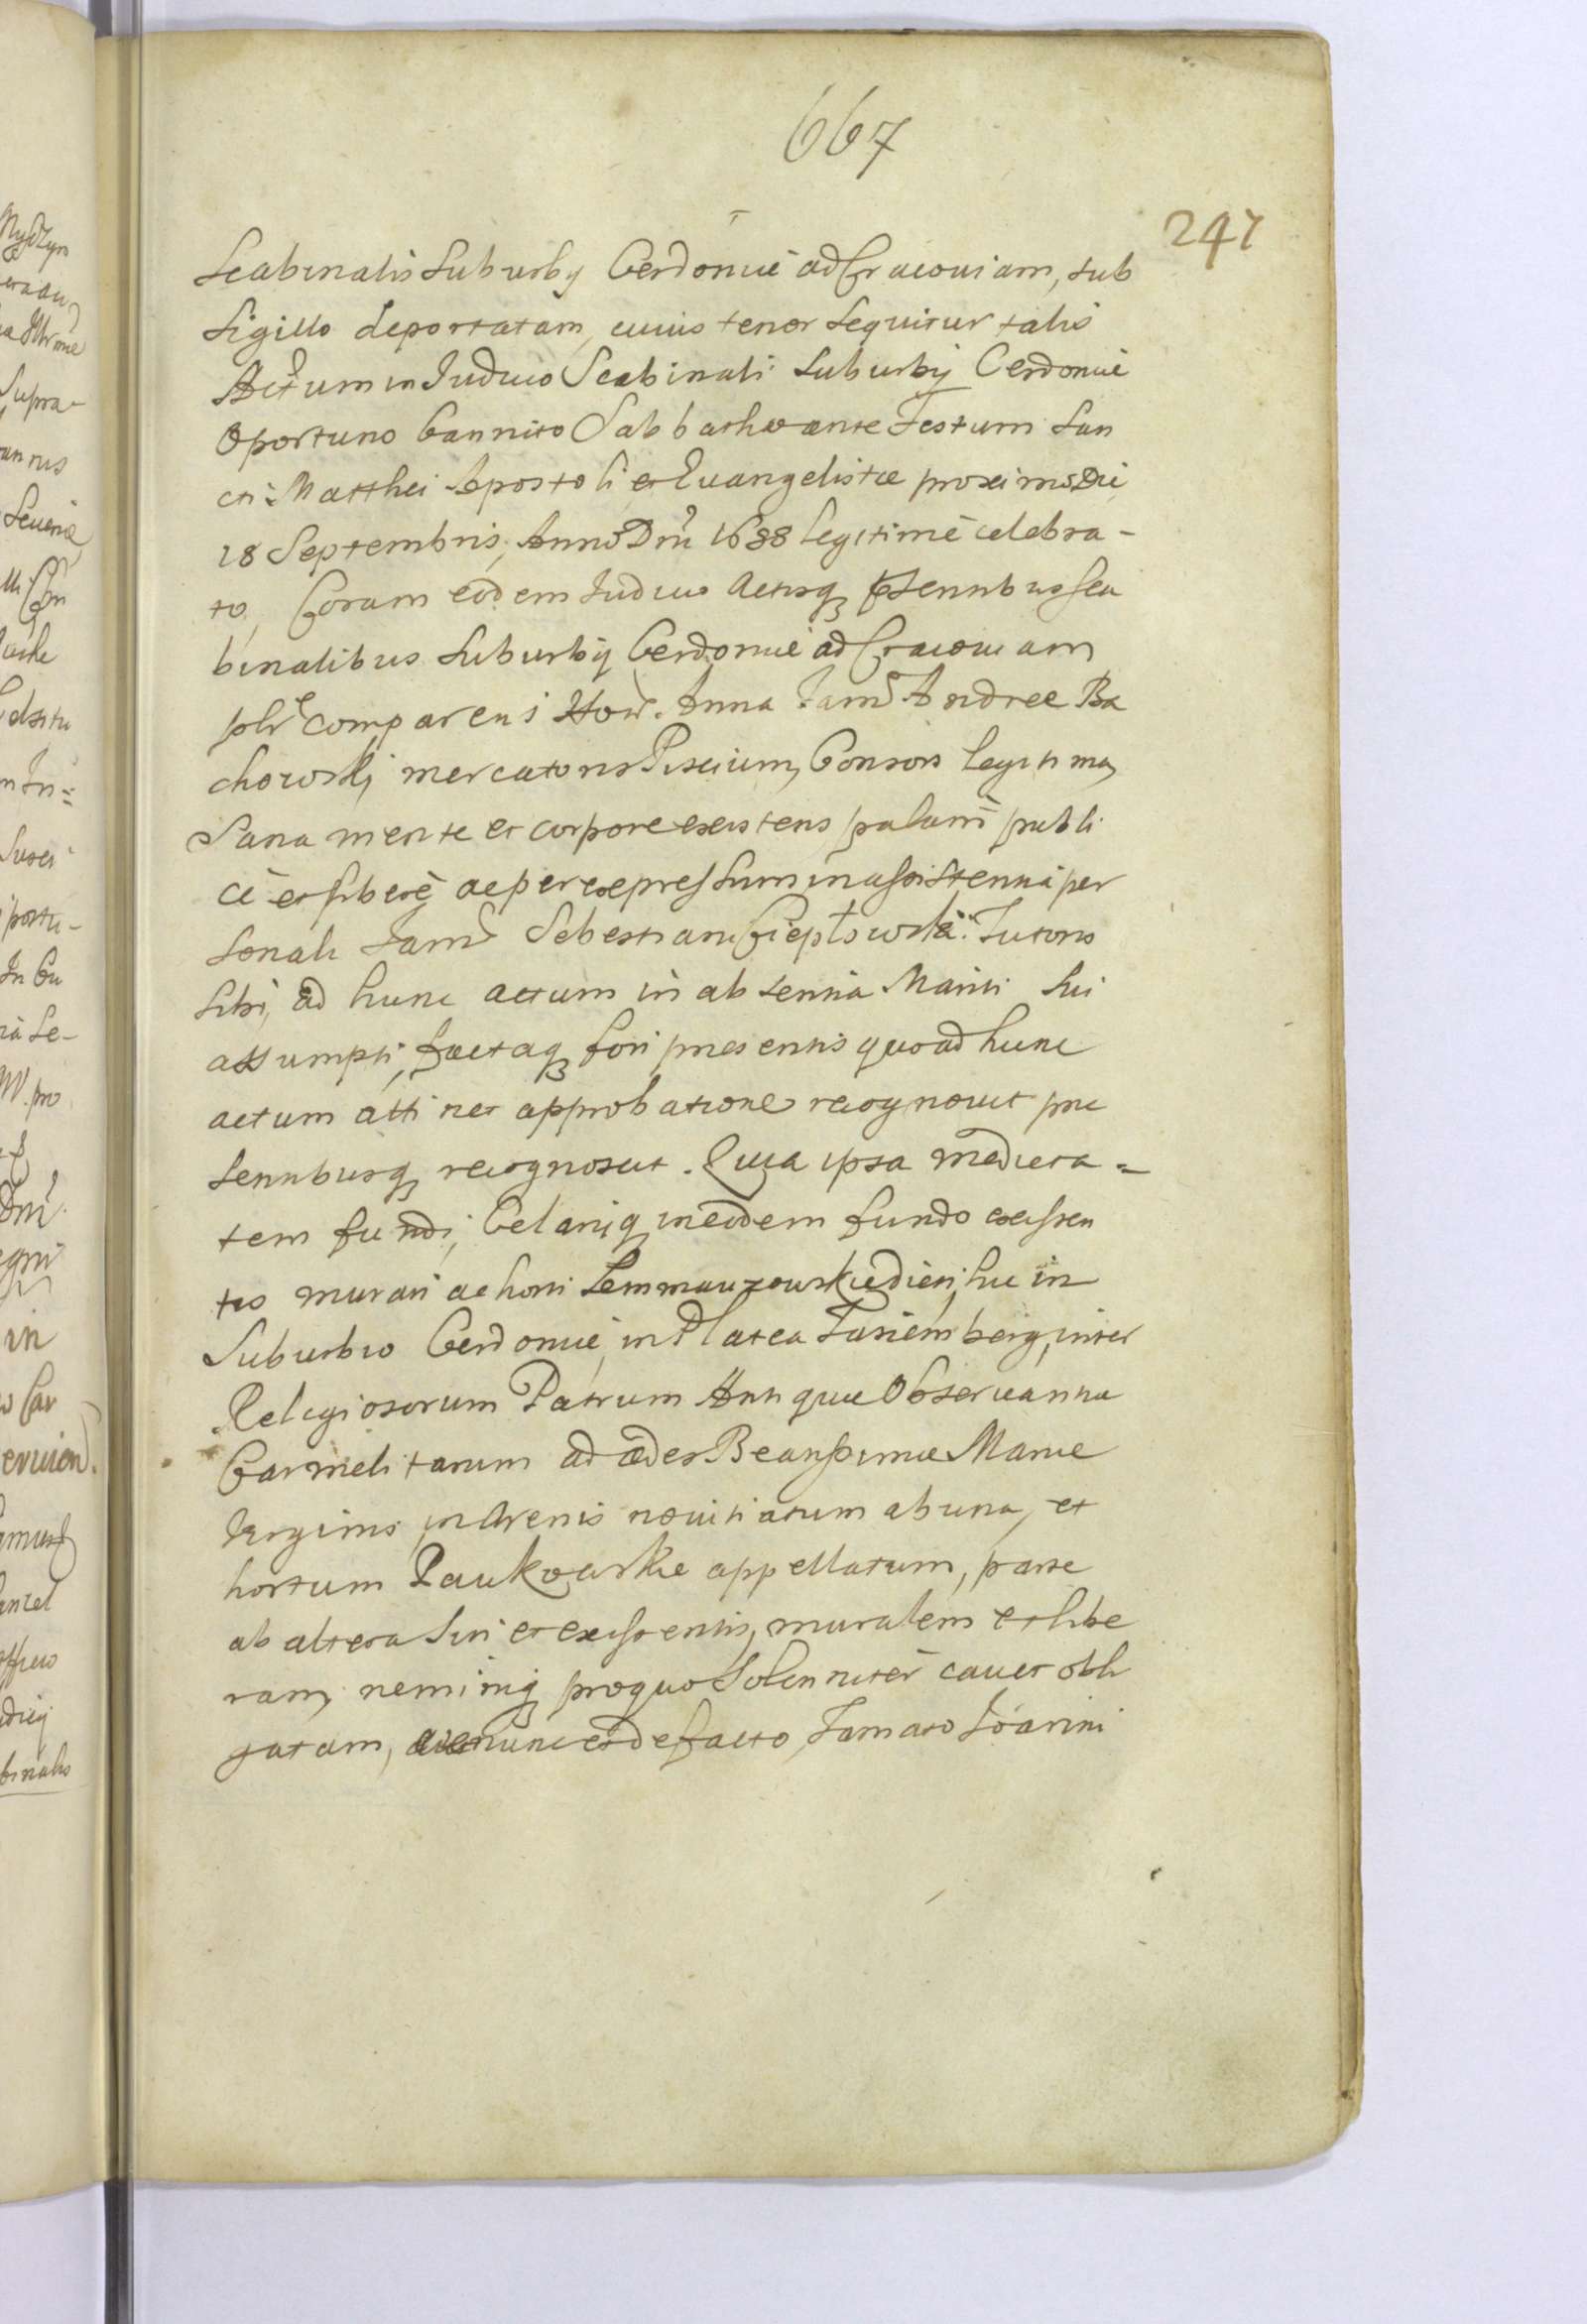 667
247
Scabinalis Suburbij Cerdonũ ad Cracouiam, sub
Sigillo deportatam, cuius tenor sequitur talis
Actum in Judicio Scabinali Suburbij Cerdonũ
Oportuno bannito Sabbatho ante Festum San
cti Matthei Apostoli et Euangelistæ proximo Die
18 Septembris, Anno Dni 1688 legitimè celebra-
to, Coram eodem Judicio Actisq₃ psentibus Sca
binalibus Suburbij Cerdonũ ad Cracouiam
plr comparens Hon. Anna Fam Andreæ Ba
chowskj mercatoris Piscium, Consors legitima,
Sana mente et corpore existens palam publi
cè et liberè ac per expressum in assistentia per
sonali Fam Sebestiani Ciepłowski Tutoris
sibi, ad hunc actum in absentia Mariti sui
assumpti, factaq₃ fori presentis quoad hunc
actum attinet approbatione recognouit pre
sentibusq₃ recognoscit. Quia ipsa medieta=
tem fundi, Celariq₃ in eodem fundo existen
tis murati ac horti Semmanzouskie dicti, hic in
Suburbio Cerdonũ, in Platea Fasiemberg, inter
Religiosorum Patrum Antiquæ Obseruantiæ
Carmelitarum ad ædes Beatissimæ Mariæ
Virginis in Arenis nouitiatum ab una, et
hortum Paukowskie appellatum, parte
ab altera siti et existentis, muratem et libe
ram, neminiq₃ pro quo Solenniter cauet obli
gatam, nunc et de facto, Famato Joanni